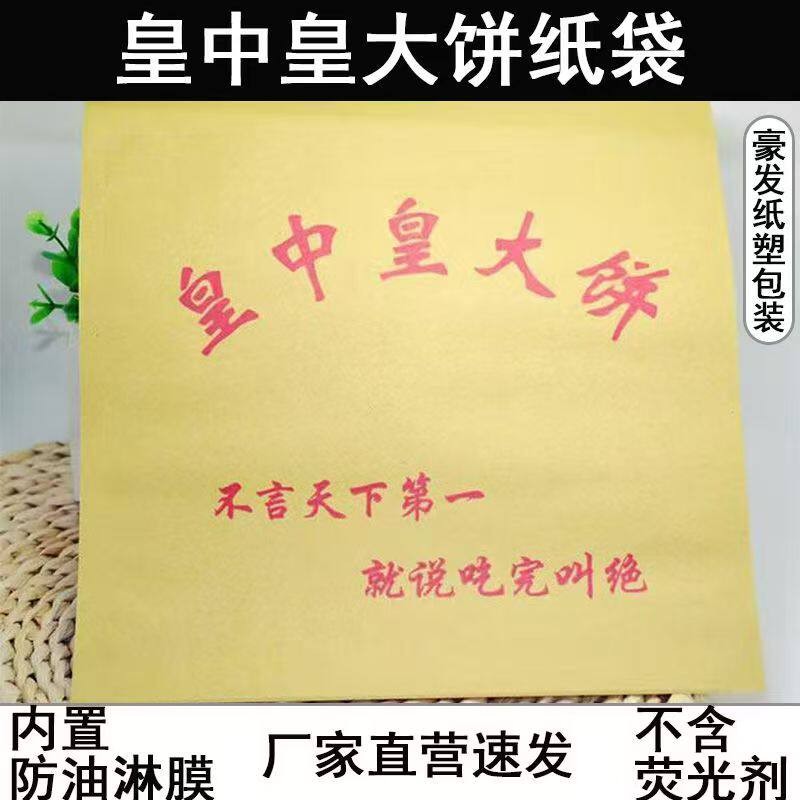 皇中皇大饼纸袋
豪发纸塑包装
皇中皇大饼
不言天下第一
就说吃完叫绝
内置
防油淋膜
厂家直营速发
不含
荧光剂